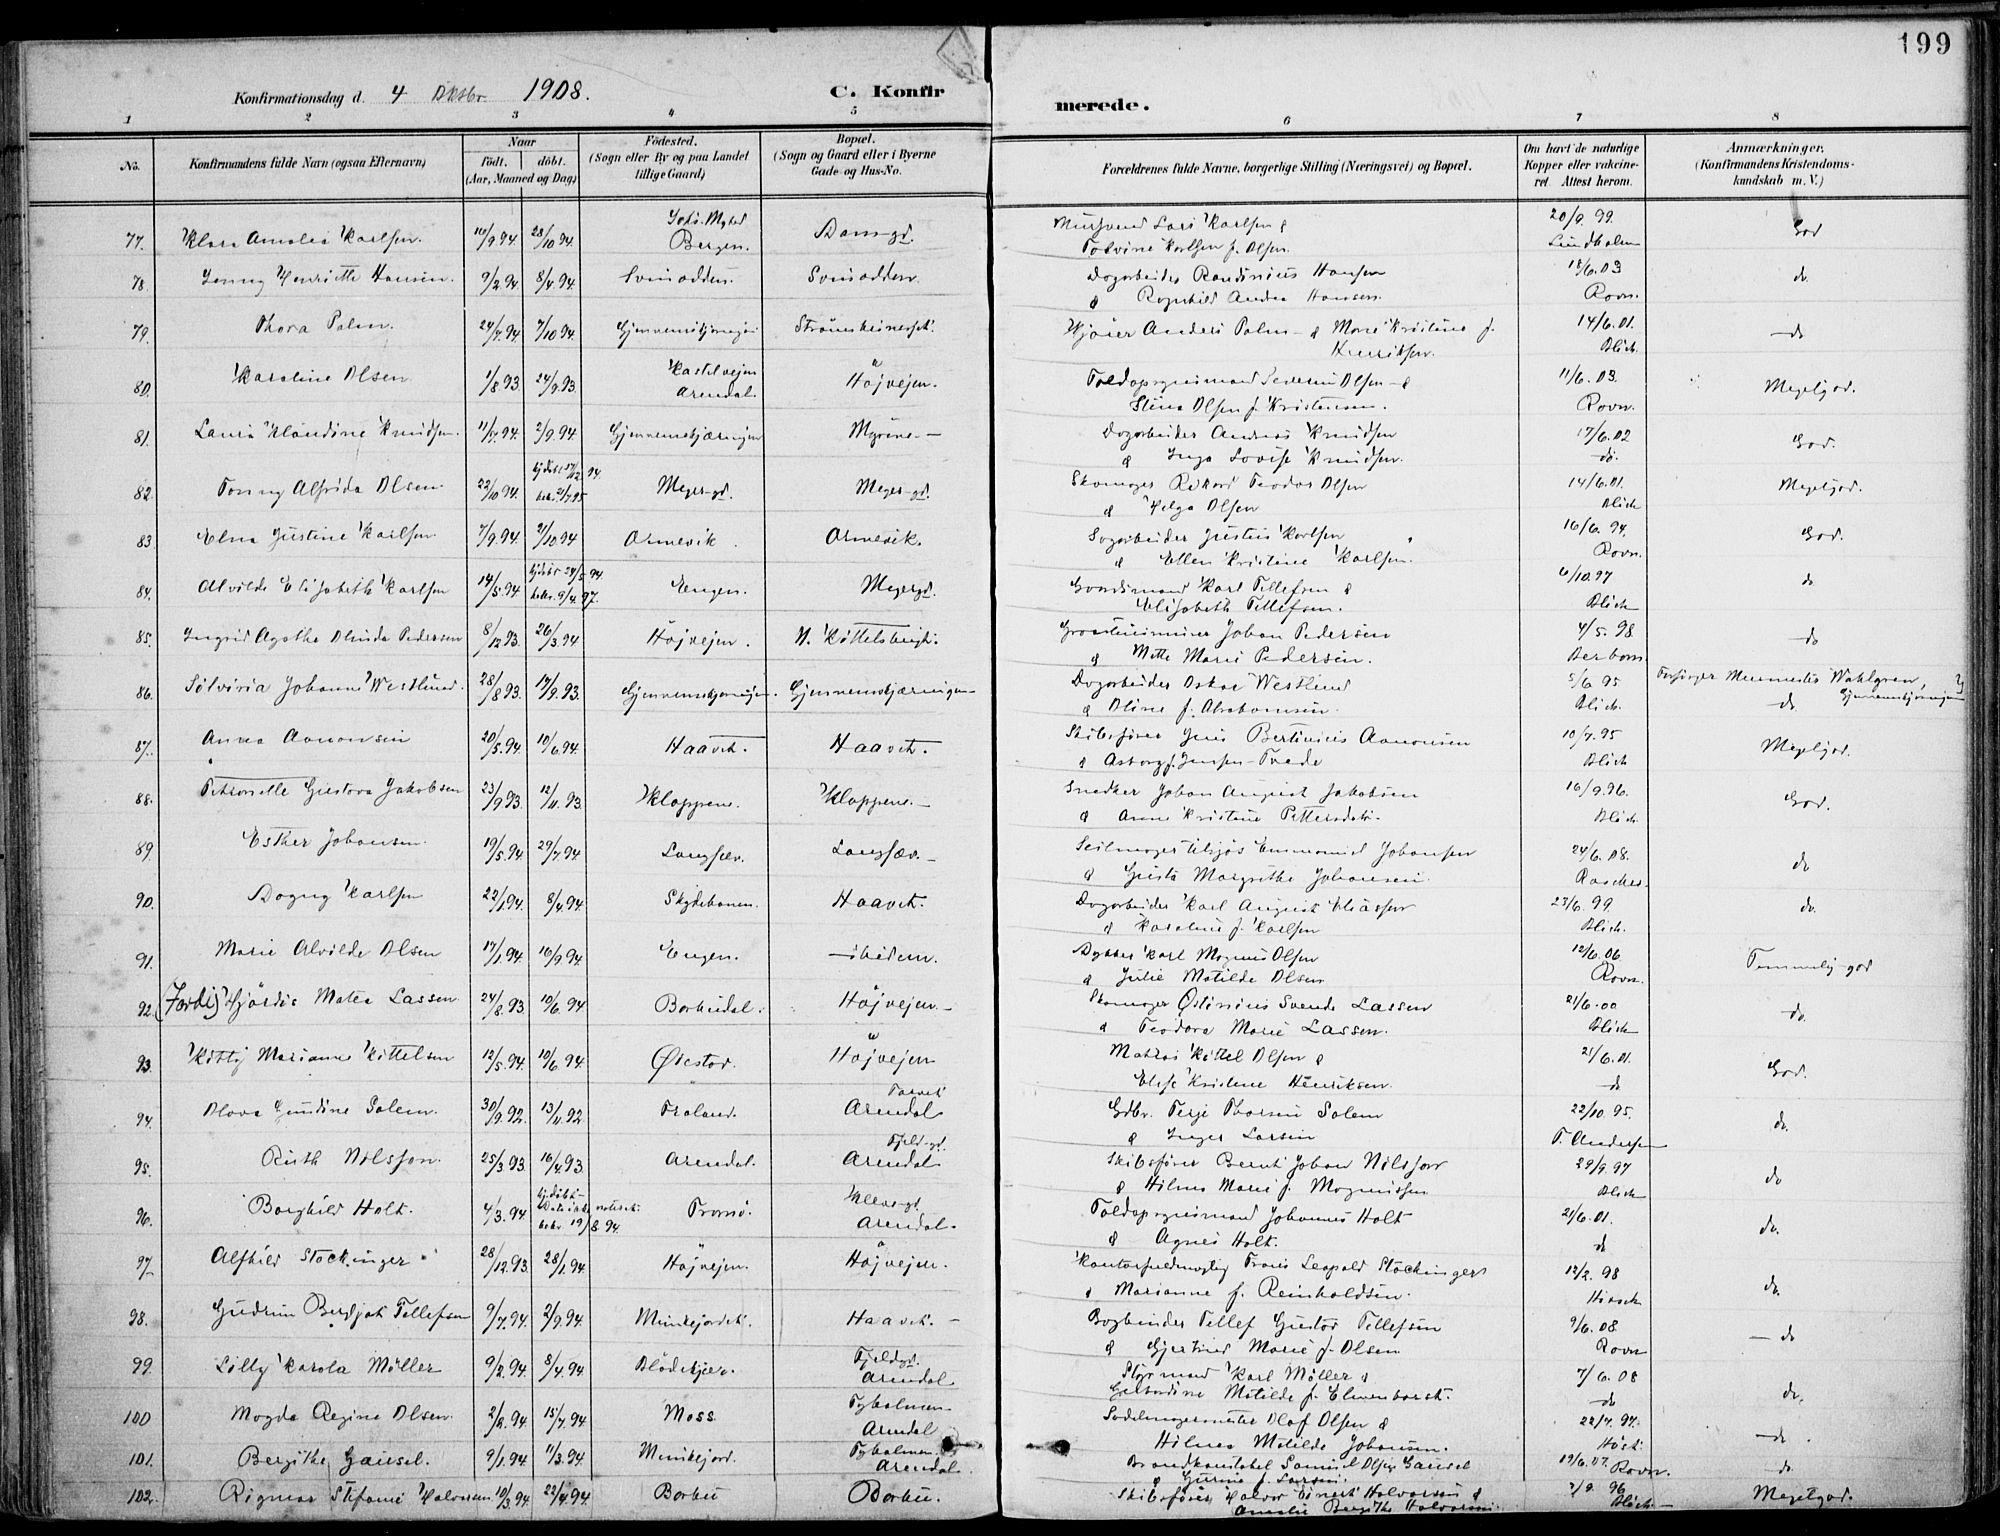 199
Konfirmationsdag d. 4 Oktbr. 1908. C. Konfirmerede.
1 2 3 4 5 6 7 8
No. Konfirmandens fulde Navn (ogsaa Efternavn) Naar født. døbt. (Aar, Maaned og Dag) Fødested. (Sogn eller By og paa Landet tillige Gaard) Bopæl. (Sogn og Gaard eller i Byerne Gade og Hus-No.) Forældrenes fulde Navne, borgerlige Stilling (Næringsvei) og Bopæl. Om havt de naturlige Kopper eller vakcineret. Attest herom. Anmærkninger. (Konfirmandens Kristendomskundskab m. V.)
77. Klara Amalie Karlsen. 10/9 94. 28/10 94. Bergen. Lars Karlsen & 20/9 99. God
Karlsen f. Olsen. Lindholm
78. Jenny Henriette Hansen. 9/2 94. 8/4 94. Svinodden. Svinodden. Dagarbeider Randinius Hansen 18/6 03 do.
& Ragnhild Andrea Hansen. Rovn.
79. Thora Palm. 24/7 94. 7/10 94. Anders Palm & Marie Kristine f. 14/6 01. do
Henriksen. Blich.
80. Karoline Olsen 1/8 93. 24/9 93. Kastelveien Arendal. Højvejen. Toldopsynsmand Severin Olsen & 11/6 03. Megetgod.
Stina Olsen f. Kristensen. Rovn.
81. Laura Klaudine Knudsen. 11/7 94. 2/9 94. Gjennemskjæringen Myrene. Dagarbeider Andreas Knudsen 17/6 02 God.
& Inga Lovise Knudsen. do.
82. Fanny Alfrida Olsen. 22/10 94. Meyer-gd. Meyer-gd. Skomager Rikard Teodor Olsen 14/6 01. Megetgod.
& Helga Olsen Blich
83 Elna Justine Karlsen. 7/9 94. 21/10 94 Arnevik. Arnevik. Justus Karlsen 16/6 94. God.
& Ellen Kristine Karlsen. Rovn.
84. Alvilde Elisabeth Karlsen 14/5 94 hjdøbt 24/5 94. bekr. 9/4 97. Engen. Meyergd. Karl Tellefsen & 6/10 97 do
Elisabeth Tellefsen. Blich
85. Ingrid Agathe Olinda Pedersen 8/12 93. 26/3 94 Højvejen. N. Kittelsbugt. Johan Pedersen 4/5 98 do
& Mette Marie Pedersen.
86. Sølviria Johanne Westlund. 28/8 93. 17/9 93. Gjennemskjæringen. Gjennemskjæringen Dagarbeider Oskar Westlund 5/6 95 Forsørger Murmester Wahlgren, Gjennemskjæringen
& Oline f. Abrahamsen. Blich. do
87. Anna Aanonsen 20/5 94. 10/6 94. Haavet. Haavet. Skibsfører Jens Bertinius Aanonsen 10/7 95 Megetgod.
& Asborg f. Jensen-Trøde Blich
88. Petronelle Gustava Jakobsen 23/9 93. 12/11 93. Kloppene. Kloppene. Snedker Johan August Jakobsen 16/9 96. God.
& Anne Kristine Pettersdtr. Blich.
89. Esther Johansen. 19/5 94 29/7 94. Langsæv. Langsæv. Seilmager Emmanuel Johansen 24/6 08. do
& Gusta Margrethe Johansen.
90. Dagny Karlsen 22/1 94. 8/4 94. Skydebanen. Haavet. Dagarbeider Karl August Eliassen 23/6 99. do.
& Karoline f. Karlsen Blich.
91. Marie Alvilde Olsen 17/1 94. 16/9 94 Engen. ibidem. Dykker Karl Magnus Olsen 12/6 06. Temmelig god
& Julie Matilde Olsen Rovn.
92. (Jordis) Hjørdis Matea Lassen 24/8 93. 10/6 94 Barbudal. Højvejen. Skomager Østinius Svende Lassen 21/6 00 do.
& Teodora Marie Lassen. Blich
93. Kitty Marianne Kittelsen 12/5 94. 10/6 94. Øiestad. Højvejen Matros Kittel Olsen & 21/6 01. God.
Elise Kristine Henriksen. do
94. Olava Gundine Solem. 30/9 92. 13/11 92 Froland. Torvet Arendal Gdbr. Terje Thorsen Solem 22/10 95. do.
& Inger Larsen T. Andersen
95. Ruth Nilsson. 25/3 93. 16/4 93. Arendal. Fjeld-gd. Arendal Skibsfører Bernt Johan Nilsson 29/9 97 do
& Hilma Marie f. Magnussen Blich
96. Borghild Holt. 4/3 94 hjdøbt bekr. 19/8 94 Tromsø. Arendal. Toldopsynsmand Johannes Holt 21/6 01. do.
& Agnes Holt. do
97 Alfhild Stockinger 28/12 93. 28/1 94. Højvejen. Højvejen. Kontorfuldmægtig Frans Leopold Stockinger 12/2 98 do.
& Marianne f. Reinholdsen.
98. Gudrun Bergljot Tellefsen 9/7 94. 2/9 94. Munkejordet. Haavet. Bogbinder Tellef Gustav Tellefsen 9/6 08 do
& Gjertine Marie f. Olsen Rovn
99. Lilly Karola Møller 9/2 94. 8/4 94. Blødekjær. Fjeldgd. Arendal Styrmand Karl Møller & 7/6 08 do.
Matilde f. do
100 Magda Regine Olsen. 2/2 94. 15/7 94 Moss Tyholmen Arendal Sadelmagermester Olaf Olsen & 22/7 97. do.
Hilma Matilde Johansen.
101. Bergithe Gausel. 9/1 94 11/3 94. Munkejord. Tyholmen. Arendal. Brandkonstabel Samuel Olsen Gausel 19/6 07. Rovn. do.
& Gurine f. Larsen.
102. Rigmor Stefanie Halvorsen 10/3 94 22/4 94. Barbu Barbu. Skibsfører Halvor Halvorsen & 2/9 96 Megetgod.
Amalie Bergithe Halvorsen. Blich.